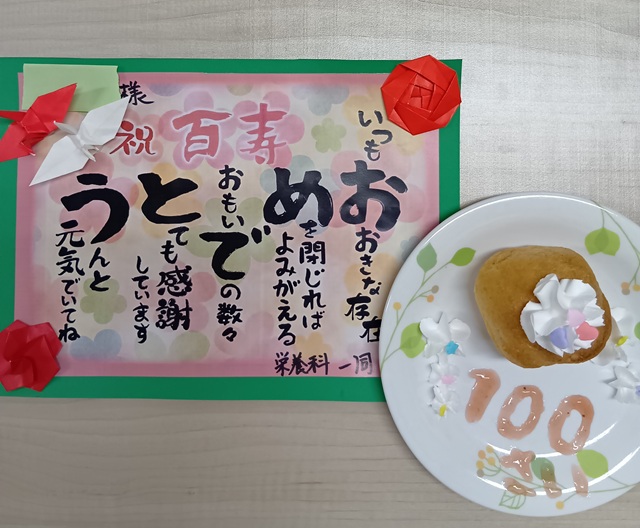 様
祝 百寿
いつも
おおきな存在
めを閉じれば
よみがえる
おもい
での数々
とても感謝
しています
うんと
元気でいてね
栄養科 一同
100